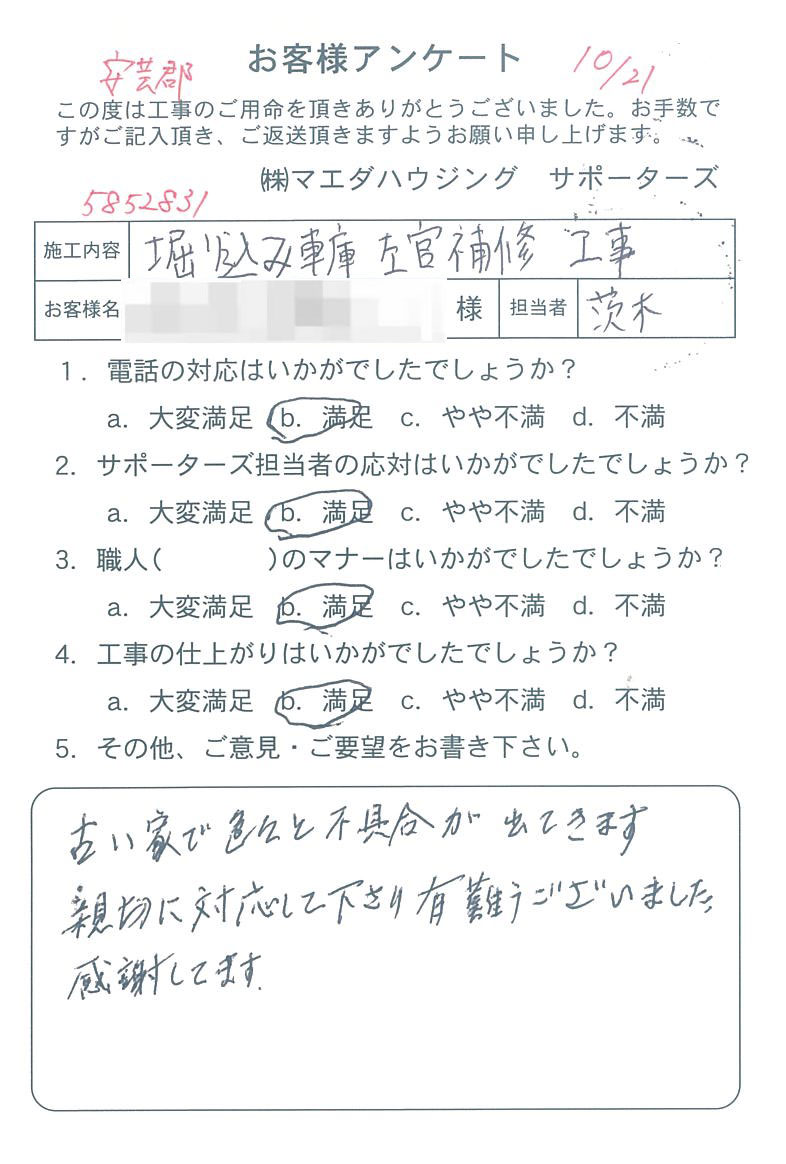 お客様アンケート
安芸郡
10/21
この度は工事のご用命を頂きありがとうございました。お手数で
すがご記入頂き、ご返送頂きますようお願い申し上げます。
㈱マエダハウジング サポーターズ
5852831
施工内容 堀り込み車庫 左官補修 工事
お客様名 様 担当者 茨木
1. 電話の対応はいかがでしたでしょうか?
a. 大変満足 b. 満足 c. やや不満 d. 不満
2. サポーターズ担当者の応対はいかがでしたでしょうか?
a. 大変満足 b. 満足 c. やや不満 d. 不満
3. 職人( )のマナーはいかがでしたでしょうか?
a. 大変満足 b. 満足 c. やや不満 d. 不満
4. 工事の仕上がりはいかがでしたでしょうか?
a. 大変満足 b. 満足 c. やや不満 d. 不満
5. その他、ご意見・ご要望をお書き下さい。
古い家で色々と不具合が出てきます
親切に対応して下さり有難うございました。
感謝してます.